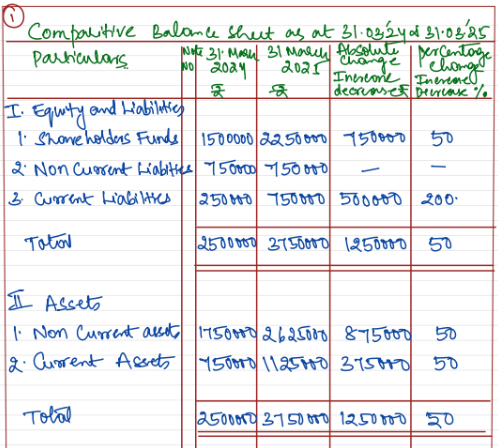 ①
Comparitive Balance sheet as at 31.03'24 & 31.03'25
Particulars Note No 31. March 2024 ₹ 31 March 2025 ₹ Absolute change Increase decrease ₹ percentage change Increase Decrease %
I. Equity and Liabilities
1. Shareholders Funds 1500000 2250000 750000 50
2. Non Current Liabilities 750000 750000 — —
3. Current Liabilities 250000 750000 500000 200.
Total 2500000 3750000 1250000 50
II Assets
1. Non Current assets 1750000 2625000 875000 50
2. Current Assets 750000 1125000 375000 50
Total 2500000 3750000 1250000 50